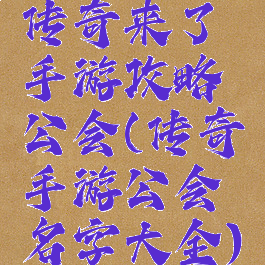 传奇来了
手游攻略
公会(传奇
手游公会
名字大全)